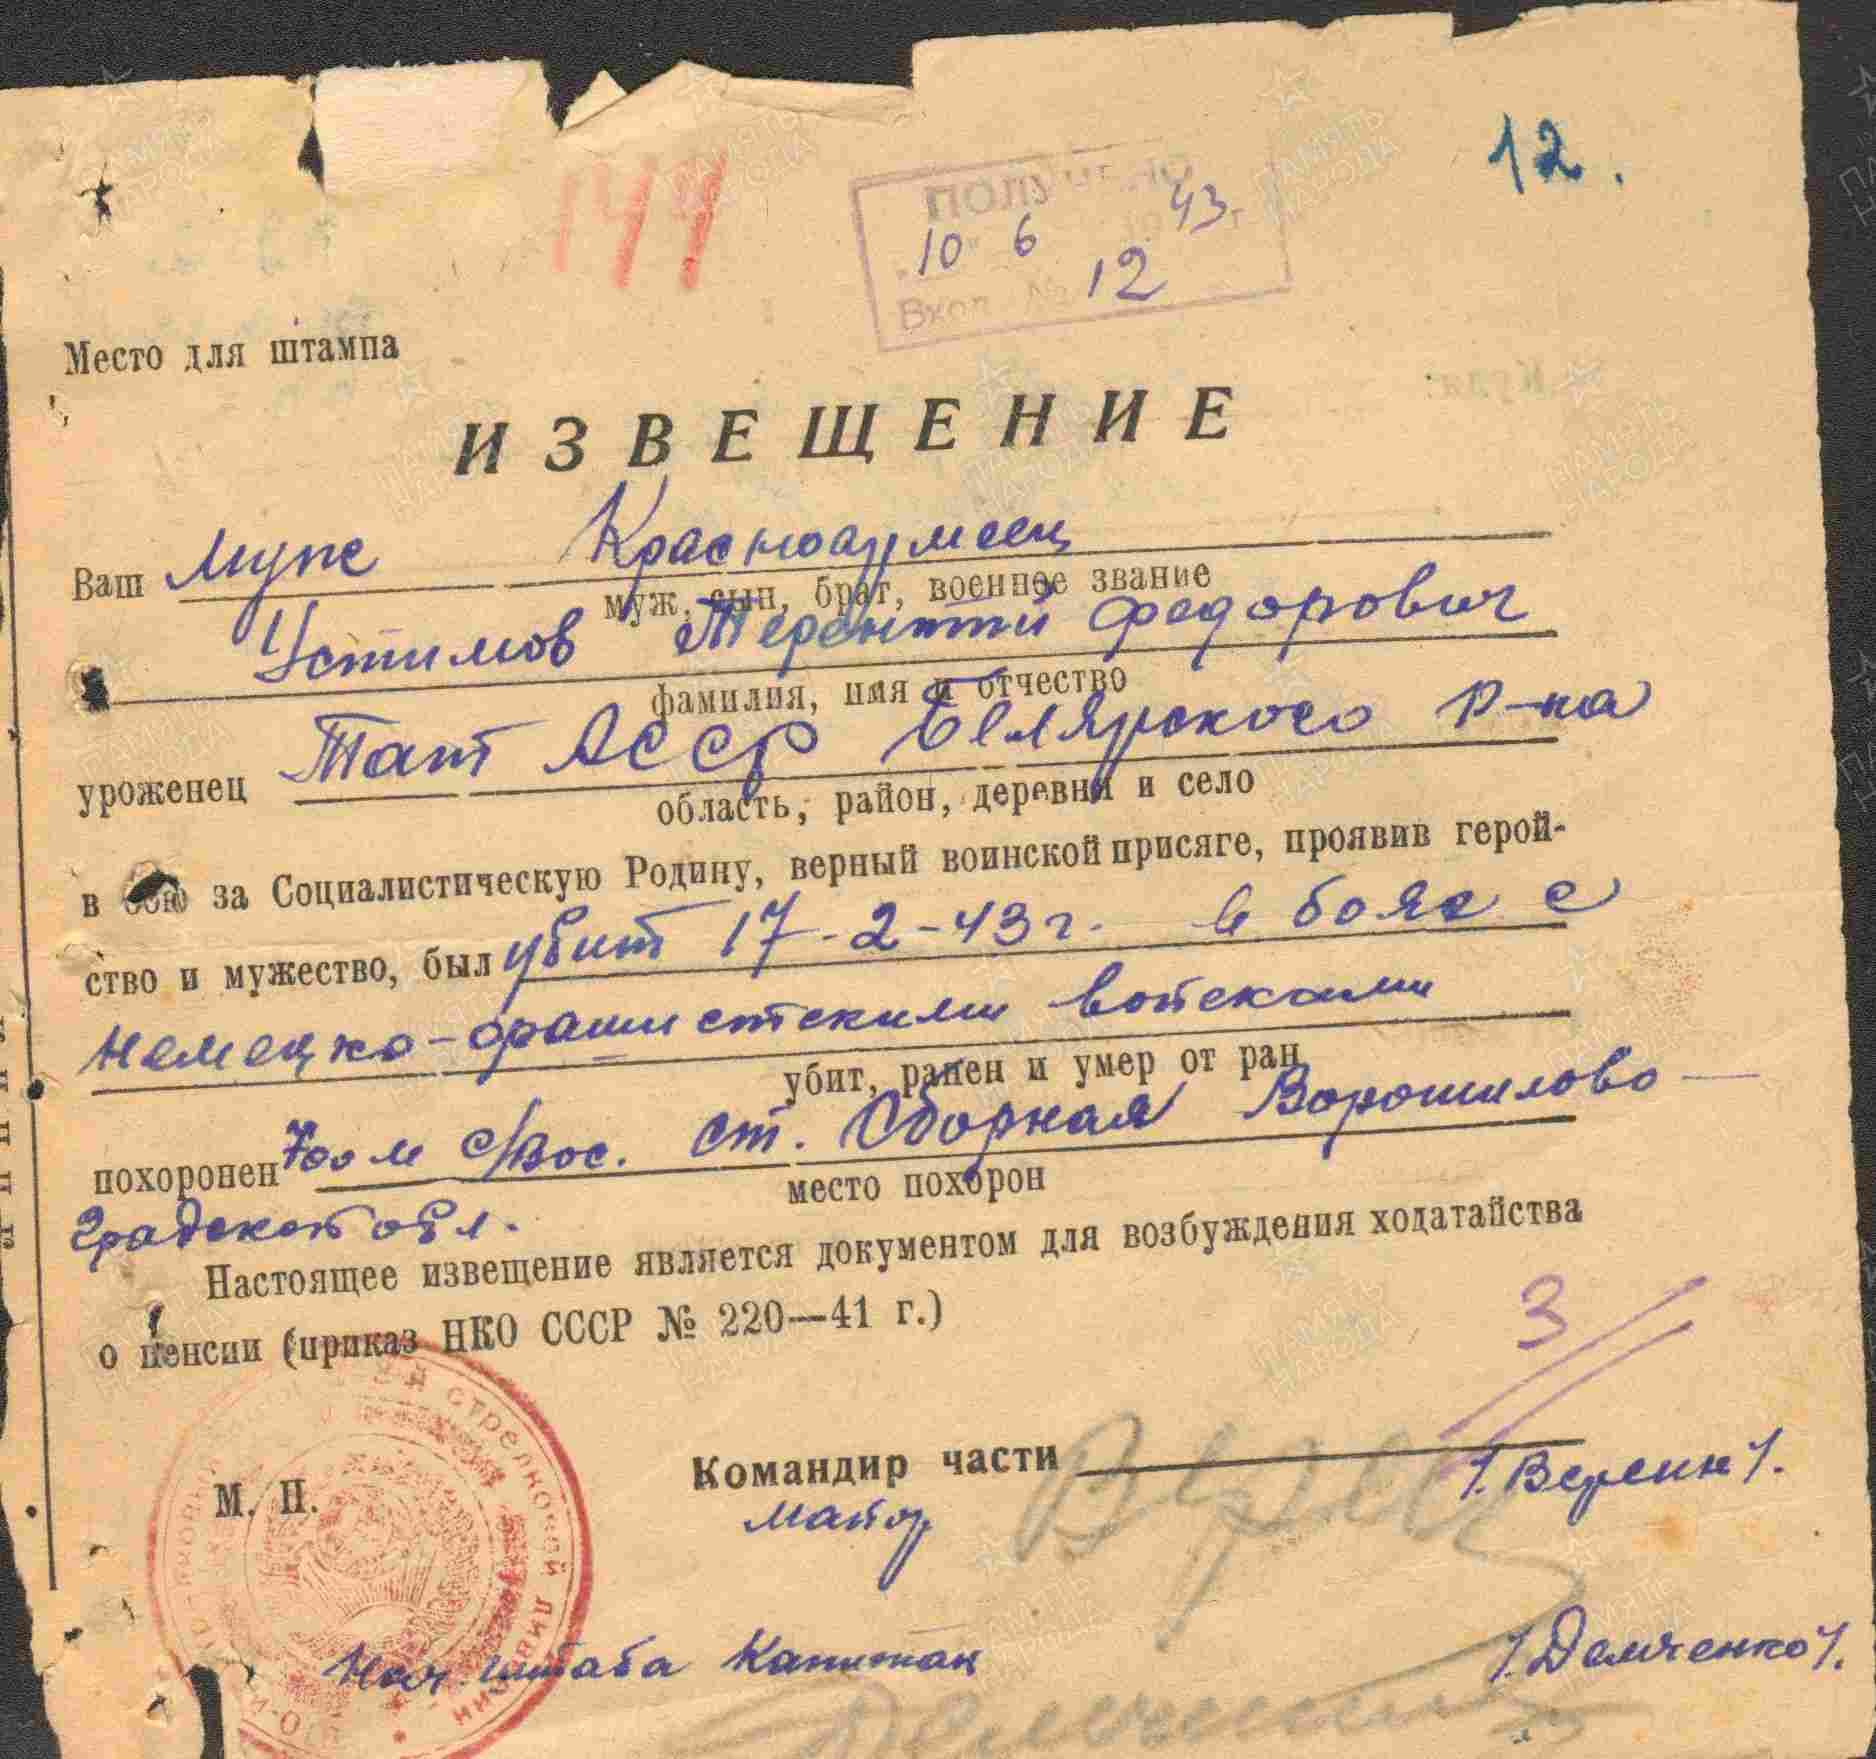 12.
144
ПОЛУЧЕНО
10 6 1943 г
Вход № 12
Место для штампа
ИЗВЕЩЕНИЕ
Ваш муж Красноармеец
муж, сын, брат, военное звание
Устимов Терентий Федорович
фамилия, имя и отчество
уроженец Тат АССР Билярского р-на
область, район, деревня и село
в бою за Социалистическую Родину, верный воинской присяге, проявив герой-
ство и мужество, был убит 17-2-43 г. в боях с
немецко-фашистскими войсками
убит, ранен и умер от ран
похоронен 700 м с/вос. ст. Сборная Ворошилово-
место похорон
градской обл.
Настоящее извещение является документом для возбуждения ходатайства
о пенсии (приказ НКО СССР № 220—41 г.)
3
М. П.
Командир части
майор /. Верещ /.
Нач. штаба Капитан /. Демченко /.
стрелковой дивизии
ПАМЯТЬ НАРОДА